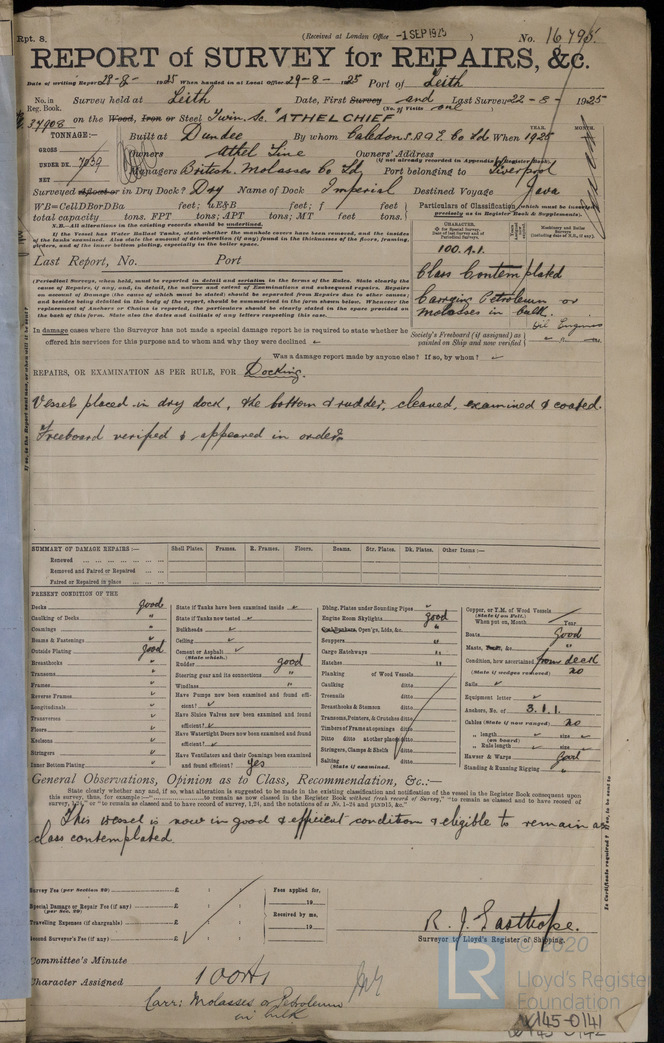 Rpt. 8.
(Received at London Office -1 SEP 1925 )
No. 16795.
REPORT of SURVEY for REPAIRS, &c.
Date of writing Report 29-8- 1925 When handed in at Local Office 29-8- 1925 Port of Leith
No. in Reg. Book. Survey held at Leith Date, First Survey and Last Survey 22-8- 1925
(No. of Visits one)
37908 on the Wood, Iron or Steel Twin. Sc. "ATHELCHIEF"
TONNAGE:— Built at Dundee By whom Caledon S.B.&E. Co Ld When 1925
YEAR. MONTH.
GROSS
UNDER DK. 7039
NET
Owners Athel Line Owners' Address
(if not already recorded in Appendix to Register Book).
Managers British Molasses Co Ld Port belonging to Liverpool
Surveyed afloat or in Dry Dock? Dry Name of Dock Imperial Destined Voyage Java
WB=CellDBorDBa feet; uE&B feet; f feet
total capacity tons. FPT tons; APT tons; MT feet tons.
Particulars of Classification (which must be inserted precisely as in Register Book & Supplements).
N.B.—All alterations in the existing records should be underlined.
If the Vessel has Water Ballast Tanks, state whether the manhole covers have been removed, and the insides of the tanks examined. Also state the amount of deterioration (if any) found in the thicknesses of the floors, framing, girders, and of the inner bottom plating, especially in the boiler space.
CHARACTER.
100.A.1.
Last Report, No. Port
Class Contemplated
Carrying Petroleum or
Molasses in bulk.
Oil Engines
(Periodical) Surveys, when held, must be reported in detail and seriatim in the terms of the Rules. State clearly the cause of Repairs, if any, and, in detail, the nature and extent of Examinations and subsequent repairs. Repairs on account of Damage (the cause of which must be stated) should be separated from Repairs due to other causes; and besides being detailed in the body of the report, should be summarised in the form shewn below. Whenever the replacement of Anchors or Chains is reported, the particulars should be clearly stated in the space provided on the back of this form. State also the dates and initials of any letters respecting this case.
Society's Freeboard (if assigned) as painted on Ship and now verified
In damage cases where the Surveyor has not made a special damage report he is required to state whether he
offered his services for this purpose and to whom and why they were declined
Was a damage report made by anyone else? If so, by whom?
REPAIRS, OR EXAMINATION AS PER RULE, FOR Docking.
Vessel placed in dry dock, the bottom & rudder, cleaned, examined & coated.
Freeboard verified & appeared in order.
SUMMARY OF DAMAGE REPAIRS:— Shell Plates. Frames. R. Frames. Floors. Beams. Str. Plates. Dk. Plates. Other Items:—
Renewed
Removed and Faired or Repaired
Faired or Repaired in place
PRESENT CONDITION OF THE
Decks good
Caulking of Decks "
Coamings "
Beams & Fastenings
Outside Plating good
Breasthooks
Transoms
Frames
Reverse Frames
Longitudinals
Transverses
Floors
Keelsons
Stringers
Inner Bottom Plating
State if Tanks have been examined inside
State if Tanks now tested
Bulkheads
Ceiling
Cement or Asphalt
(State which.)
Rudder good
Steering gear and its connections "
Windlass "
Have Pumps now been examined and found efficient?
Have Sluice Valves now been examined and found efficient?
Have Watertight Doors now been examined and found efficient?
Have Ventilators and their Coamings been examined and found efficient? yes
Dblng. Plates under Sounding Pipes
Engine Room Skylights good
Coal Bunkers, Open'gs, Lids, &c. "
Scuppers "
Cargo Hatchways "
Hatches "
Planking of Wood Vessels
Caulking ditto
Treenails ditto
Breasthooks & Stemson ditto
Transoms, Pointers, & Crutches ditto
Timbers of Frame at openings ditto
Ditto ditto at other places ditto
Stringers, Clamps & Shelfs ditto
Salting ditto
(State if examined.)
Copper, or Y.M. of Wood Vessels
(State if on Felt.)
When put on, Month Year
Boats good
Masts, Spars, &c. "
Condition, how ascertained from deck
(State if wedges removed) no
Sails
Equipment letter
Anchors, No. of 3.1.1.
Cables (State if now ranged) no
" length size
(on board)
" Rule length size
Hawser & Warps Good
Standing & Running Rigging "
General Observations, Opinion as to Class, Recommendation, &c.:—
State clearly whether any and, if so, what alteration is suggested to be made in the existing classification and notification of the vessel in the Register Book consequent upon
this survey, thus, for example:—" to remain as now classed in the Register Book without fresh record of Survey," "to remain as classed and to have record of
survey, 1,24," or "to remain as classed and to have record of survey, 1,24, and the notations of
This vessel is now in good & efficient condition & eligible to remain as
class contemplated.
Survey Fee (per Section 29) £
Special Damage or Repair Fee (if any) £
(per Sec. 29)
Travelling Expenses (if chargeable) £
Second Surveyor's Fee (if any) £
Fees applied for,
19
Received by me,
19
R. J. Easthope.
Surveyor to Lloyd's Register of Shipping.
Committee's Minute
Character Assigned 100A1
Carr: Molasses or Petroleum
in bulk
© 2020
LR
Lloyd's Register
Foundation
W145-0141